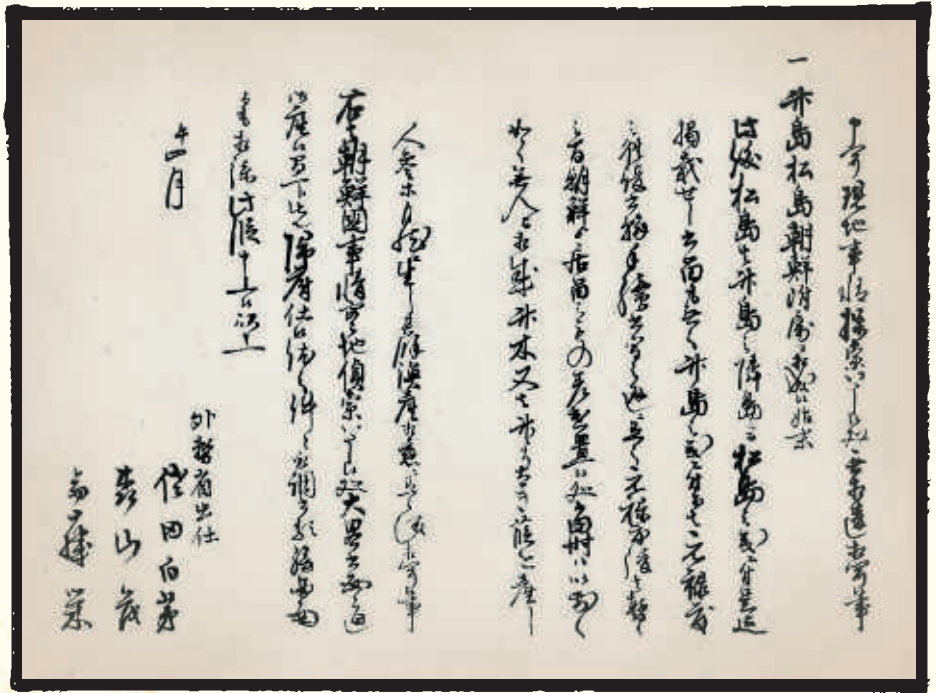 現地事情探索
一 竹島松島朝鮮附属ニ相成候始末
此儀松島ハ竹島之隣島ニテ松島之義ニ付是迄
掲載セシ書留モ無之竹島之義ニ付テハ元禄度
之往復書翰手続書元禄度後ハ暫ク
之間朝鮮ヨリ居留之者差遣置候処当時ハ以前ノ
如ク無人ト相成竹木又ハ竹ヨリ太キ葭ヲ産シ
人参等自然ニ生シ其余漁産モ相応ニ
右ハ朝鮮國事情実地偵索イタシ候処大略書面之通
御座候間一ト先帰府仕候依之件々取調書類絵図面
相添此段申上候以上
午四月
外務省出仕
佐田白茅
森山茂
斎藤栄